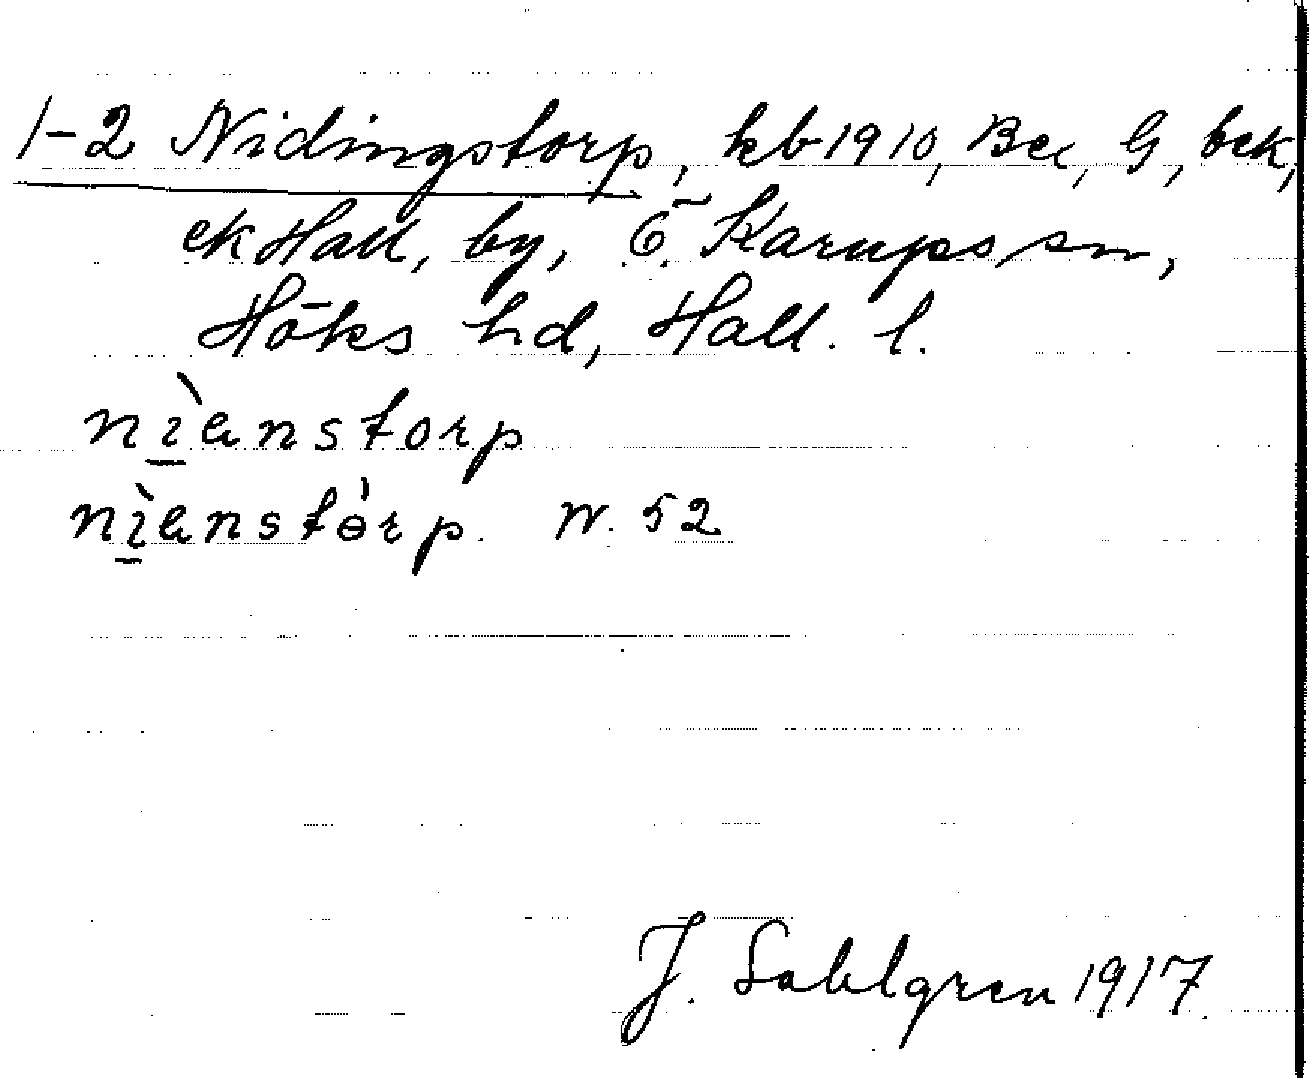 1-2 Nidingstorp, kb 1910, Bec, G, bek,
ek Hall, by, Ö. Karups sn,
Höks hd, Hall. l.
nìanstorp
nìanstórp. W. 52
J. Sahlgren 1917.